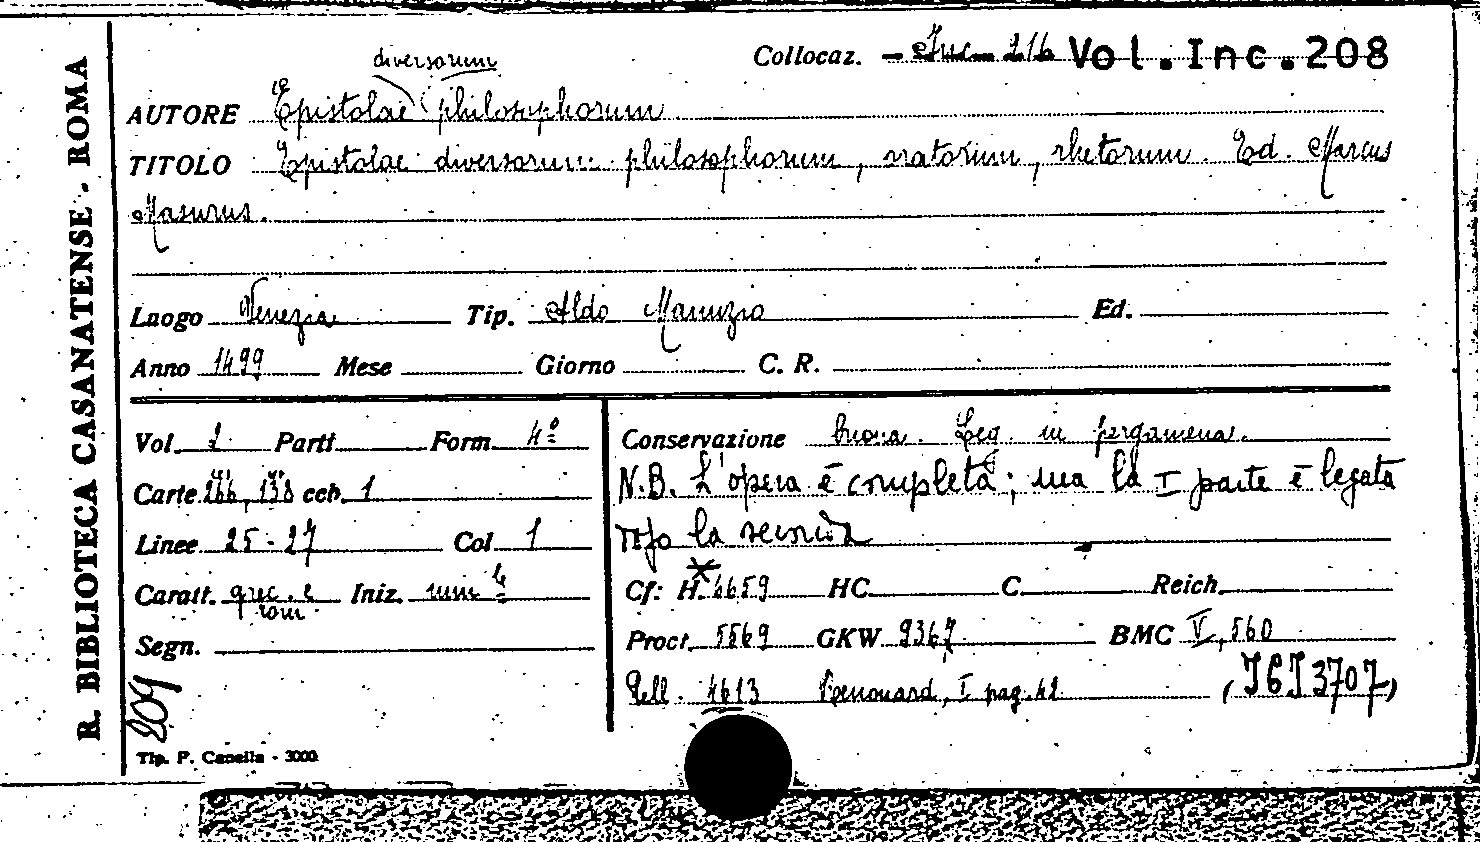 R. BIBLIOTECA CASANATENSE - ROMA
Collocaz. - Inc. 216 Vol. Inc. 208
diversorum
AUTORE Epistolae philosophorum
TITOLO Epistolae diversorum philosophorum, oratorum, rhetorum. Ed. Marcus
Masurus.
Luogo Venezia Tip. Aldo Manuzio Ed.
Anno 1499 Mese Giorno C. R.
Vol. 1 Parti Form. 4º
Carte 266, 138 ccb. 1
Linee 25-27 Col. 1
Caratt. grec. e rom. Iniz. min.
Segn.
209
Conservazione buona. Leg. in pergamena.
N.B. L'opera è completa; ma la I parte è legata
dopo la seconda
Cf: H.* 6659 HC. C. Reich.
Proct. 5569 GKW 9367 BMC V, 560
Pell. 4613 Renouard, I pag. 42 (IGI 3707)
Tip. F. Canella - 3000